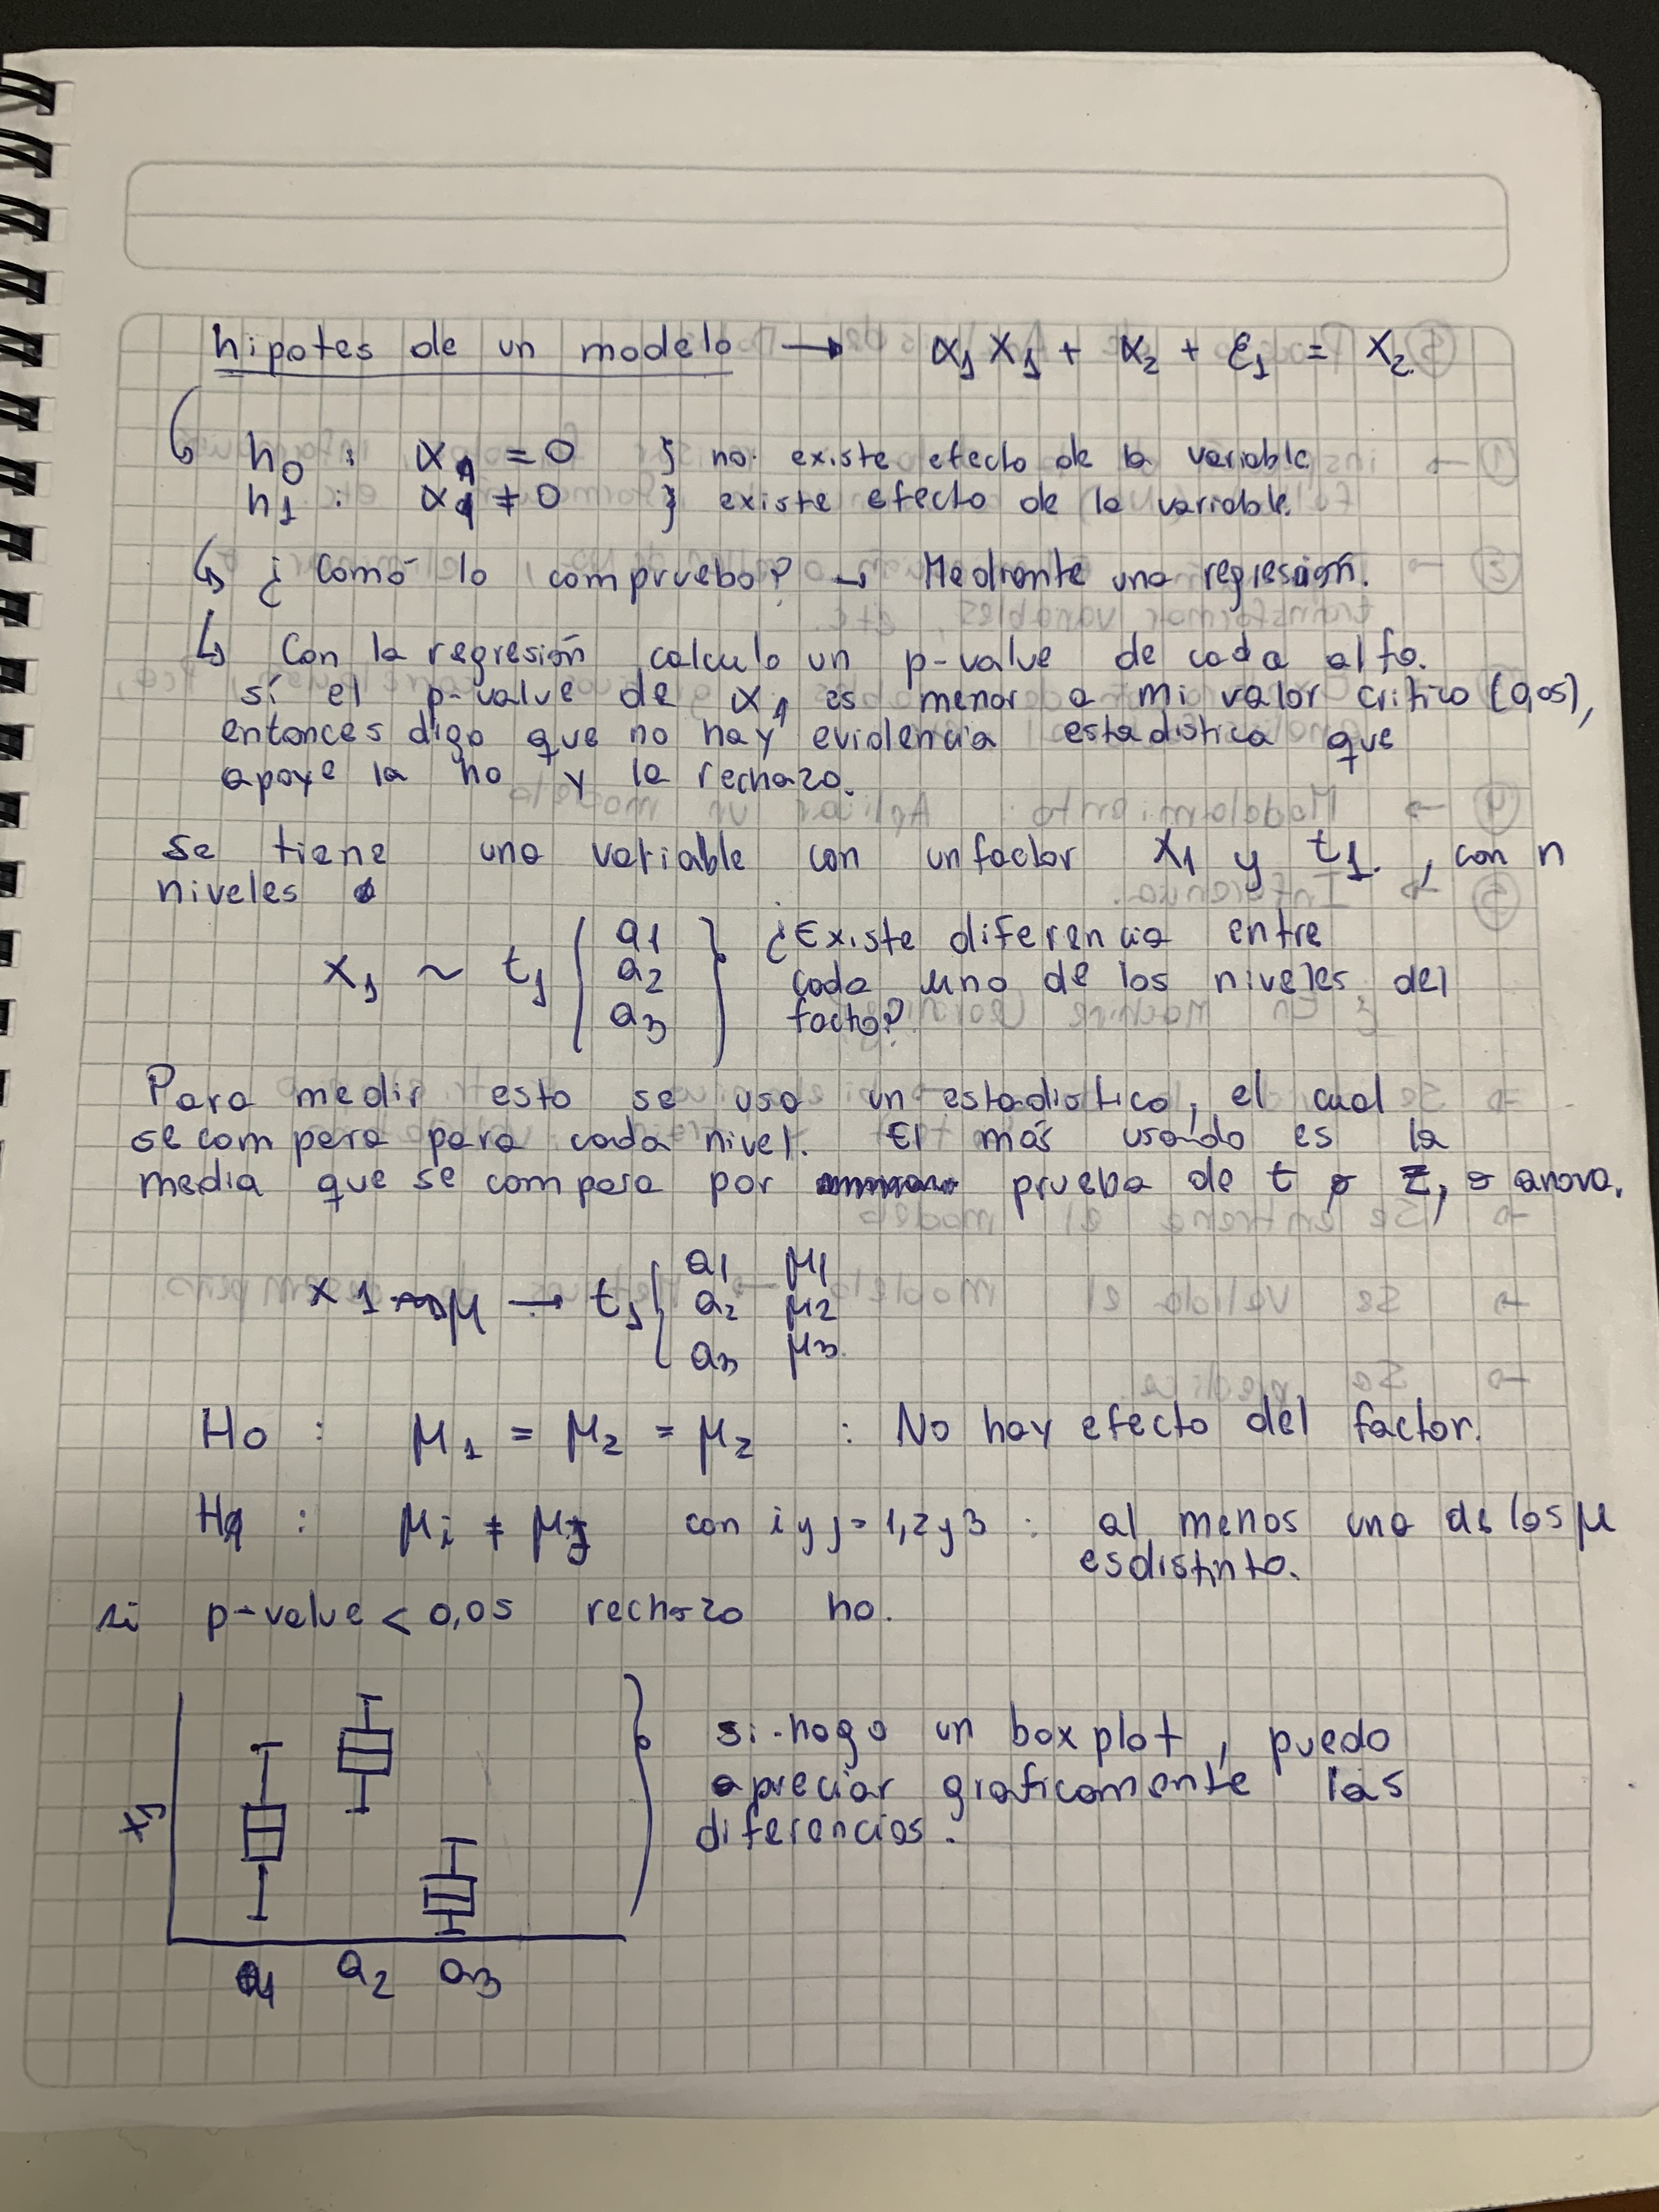 hipotes de un modelo → α1 X1 + α2 + ε1 = X2.
h0 : α1 = 0 } no existe efecto de la variable
h1 : α1 ≠ 0 } existe efecto de la variable.
¿ Comó lo compruebo? → Mediante una regresión.
Con la regresión calculo un p-value de cada alfa.
sí el p-value de α1 es menor a mi valor critico (0,05),
entonces digo que no hay evidencia estadistica que
apoye la ho y la rechazo.
Se tiene una variable con un factor X1 y t1. , con n
niveles
X1 ~ t1 ( a1 a2 a3 } ¿Existe diferencia entre
cada uno de los niveles del
facto?
Para medir esto se usa un estadistico, el cual
se compara para cada nivel. El más usado es la
media que se compara por prueba de t o z, o anova.
X1 μ → t1 { a1 μ1
a2 μ2
a3 μ3.
Ho : μ1 = μ2 = μ2 : No hay efecto del factor.
H1 : μi ≠ μj con i y j = 1,2 y 3 : al menos una de los μ
es distinto.
si p-value < 0,05 rechazo ho.
si hago un box plot, puedo
apreciar graficamente las
diferencias.
X1
a1 a2 a3